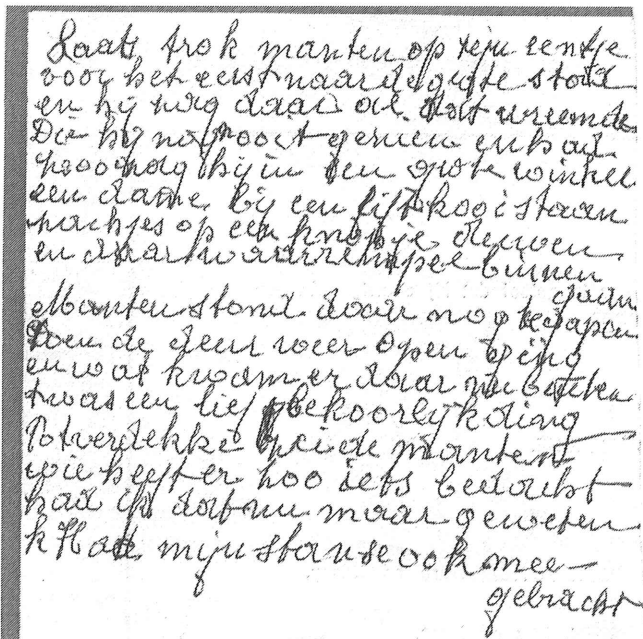 Laats trok manten op zijn eentje
voor het eerst naar de grote stad
en hij zag daar al dat vreemde
Die hij nog nooit gezien en had
zoo zag hij in een grote winkel
een dame bij een liftkooi staan
zachjes op een knopje duwen
en daar waarrempel binnen
gaan
Manten stond daar nog te gapen
Toen de deur weer open ging
en wat kwam er daar nu buiten
twas een lief bekoorlijk ding
Potverdekke zeide manten
wie heeft er zoo iets bedacht
had ik dat nu maar geweten
k Had mijn stanse ook mee-
gebracht